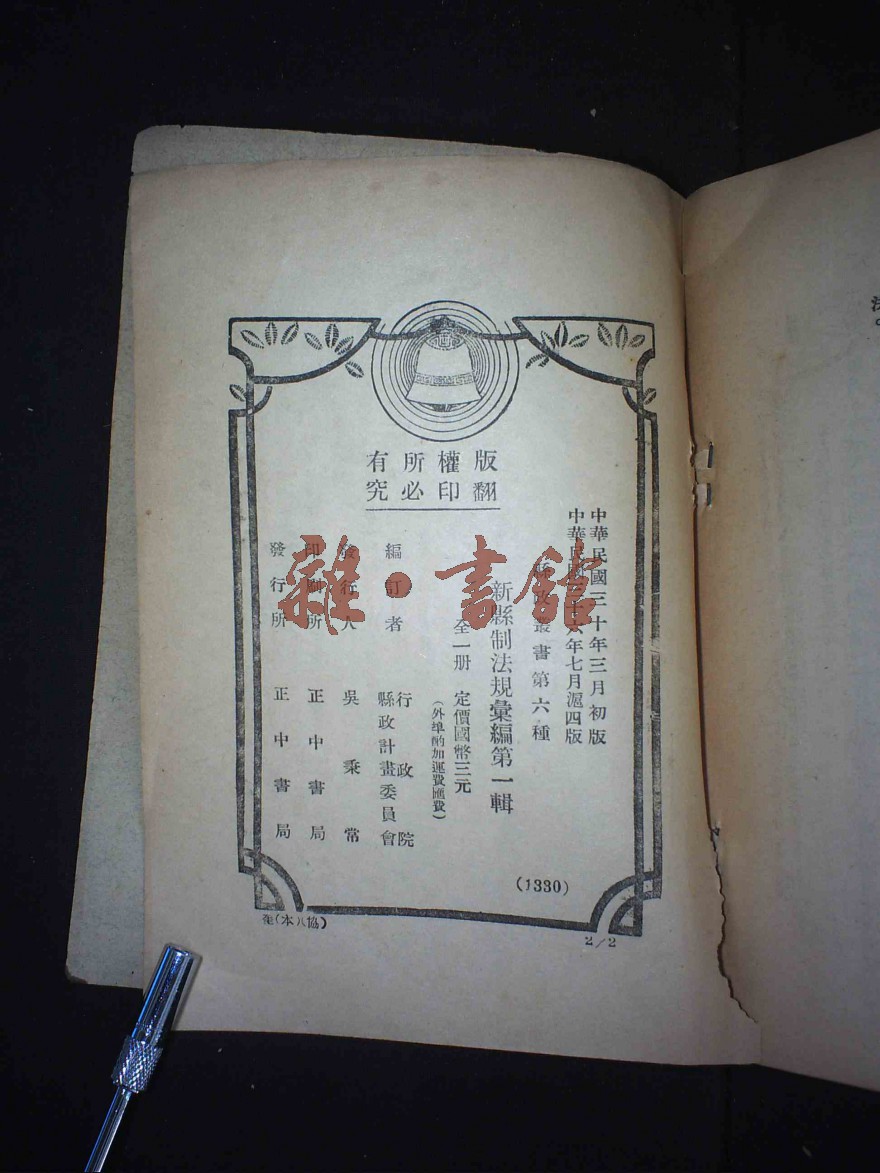 版權所有
翻印必究
中華民國三十年三月初版
中華民國三十六年七月滬四版
縣政叢書第六種
新縣制法規彙編第一輯
全一册 定價國幣三元
(外埠酌加運費匯費)
編訂者 行政院
縣政計畫委員會
發行人 吳秉常
印刷所 正中書局
發行所 正中書局
(1330)
(協八本)
2/2
雜·書館